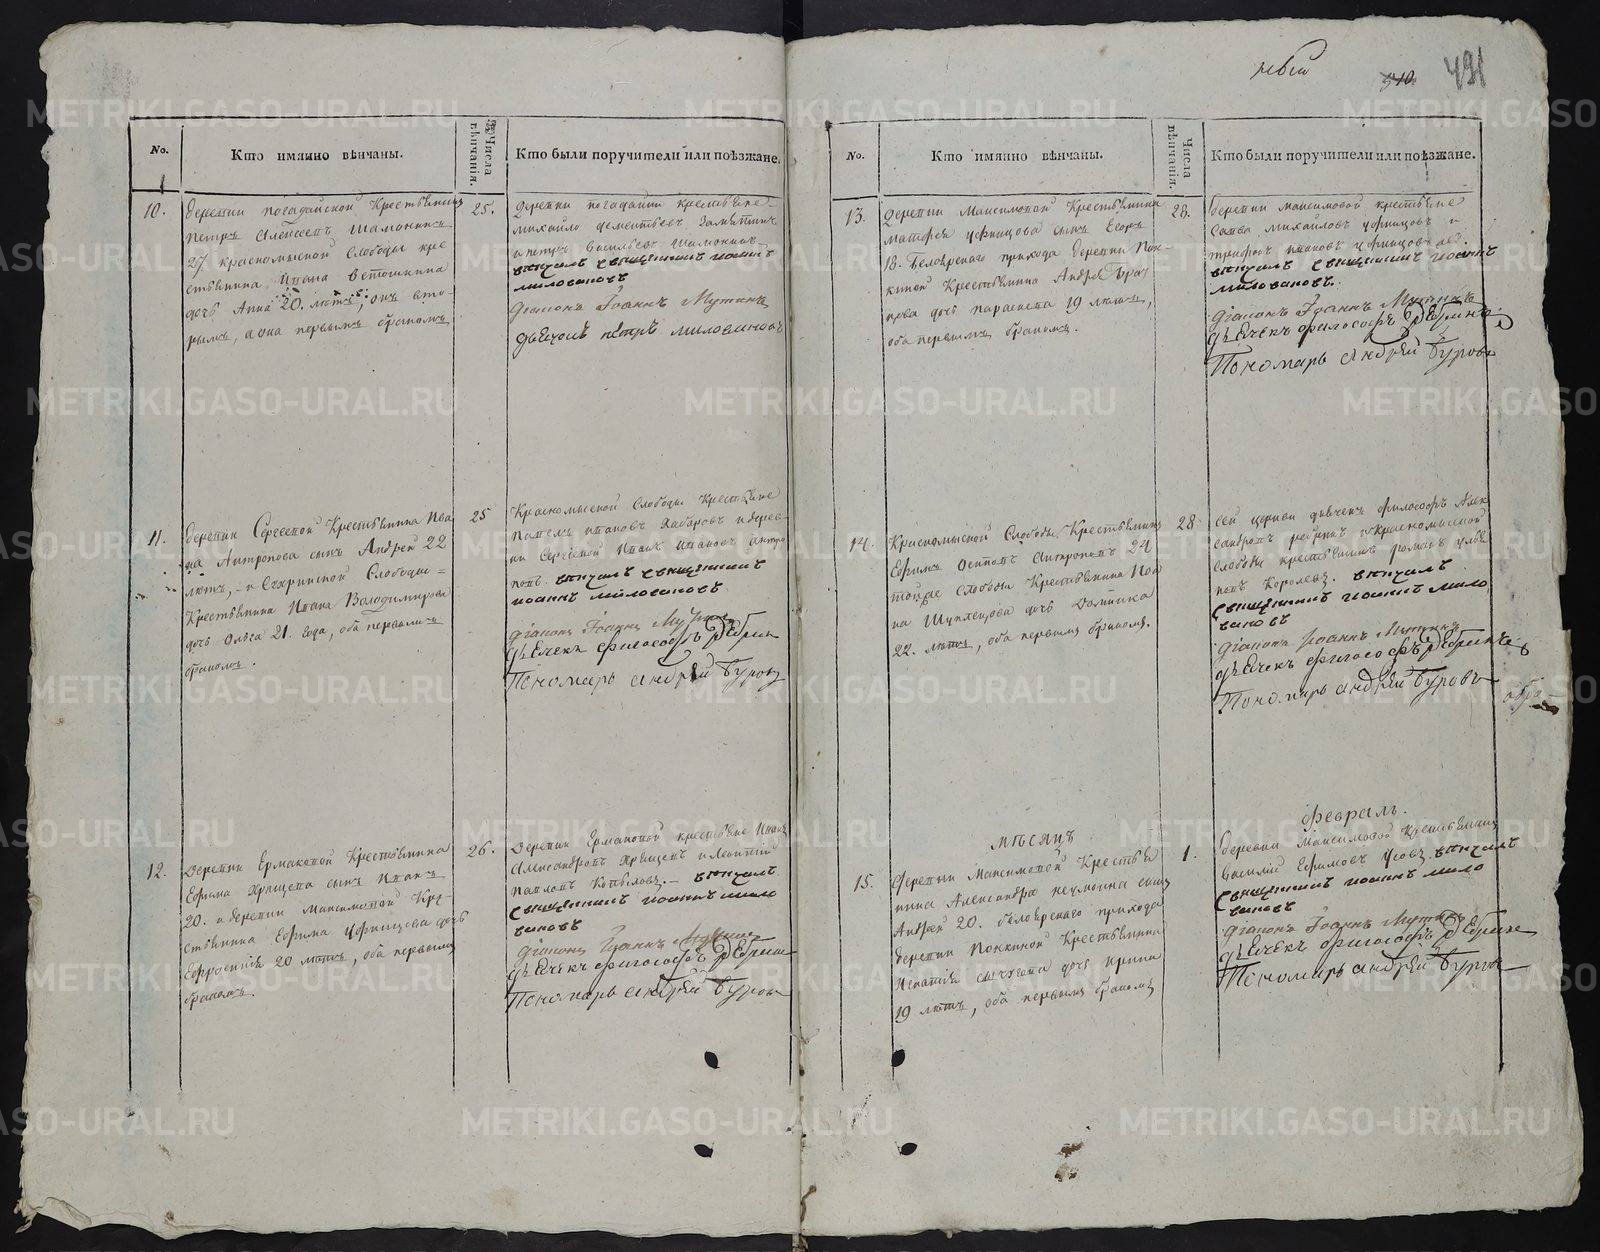 491
No.
Кто имянно вѣнчаны.
Числа вѣнчанія.
Кто были поручители или поѣзжане.
10.
деревни погадайской Крестьянинъ
Петръ Алексеевъ Шамонинъ
27, красномыской слободы кре
стьянина Ивана Ветошкина
дочь Анна 20. лѣтъ, онъ вто-
рымъ, а она первымъ бракомъ
25.
Деревни погадайской крестьяне
михайло дементьевъ
и петръ васильевъ Шамонинъ
венчалъ священникъ иоаннъ
миловановъ
діаконъ Іоаннъ Мутинъ
дьячокъ петръ миловановъ
11.
деревни Сергеевой Крестьянина Ива
на Антропова сынъ Андрей 22
лѣтъ, и слободы
Крестьянина Ивана Володимирова
дочь Ольга 21. года, оба первымъ
бракомъ.
25
Красномыской слободы Крестьяне
павелъ ивановъ Хабаровъ и дерев
ни Сергеевой Иванъ Ивановъ антро
повъ. венчалъ священникъ
иоаннъ миловановъ
діаконъ Іоаннъ Мутинъ
дьячекъ философъ Рѣбринъ
Пономарь андрей Буровъ
12.
Деревни Ермаковой Крестьянина
Ефима Хрящева сынъ Иванъ
20. и деревни Максимовой Кре
стьянина Ефима Уфинцова дочь
Ефросинія 20 лѣтъ, оба первымъ
бракомъ.
26.
Деревни Ермаковой крестьяне Иванъ
Александровъ Хрящевъ и Леонтій
павловъ Копыловъ. венчалъ
священникъ иоаннъ мило
вановъ
діаконъ Іоаннъ Мутинъ
дьячекъ философъ Рѣбринъ
Пономарь андрей Буровъ
No.
Кто имянно вѣнчаны.
Числа вѣнчанія.
Кто были поручители или поѣзжане.
13.
Деревни Максимовой Крестьянина
Матфея Уфинцова сынъ Егоръ
18. Белоярскаго прихода деревни Пон-
киной Крестьянина Андрея
дочь парасковья 19 лѣтъ,
оба первымъ бракомъ.
28.
деревни максимовой крестьяне
Савва михайловъ уфинцовъ и
трифонъ ивановъ уфинцовъ
венчалъ священникъ иоаннъ
миловановъ.
діаконъ Іоаннъ Мутинъ
дьячекъ философъ Рѣбринъ
Пономарь андрей Буровъ
14.
Красномыской Слободы Крестьянинъ
Ефимъ Осиповъ Антроповъ 24
той же слободы Крестьянина Ива
на Шуплецова дочь Домника
22. лѣтъ, оба первымъ бракомъ.
28.
сей церкви дьячекъ философъ Алек
сандровъ ребринъ и красномыской
слободы крестьянинъ
Королевъ. венчалъ
священникъ иоаннъ мило
вановъ
діаконъ Іоаннъ Мутинъ
дьячекъ философъ Рѣбринъ
Пономарь андрей Буровъ
мѣсяцъ
февраль.
15.
деревни Максимовой Крестья
нина Александра неумоина сынъ
Андрей 20. белоярскаго прихода
деревни Понкиной Крестьянина
Игнатія дочь ирина
19 лѣтъ, оба первымъ бракомъ
1.
деревни Максимовой Крестьянинъ
василий Ефимовъ Усовъ венчалъ
священникъ иоаннъ мило
вановъ
діаконъ Іоаннъ Мутинъ
дьячекъ философъ Рѣбринъ
Пономарь андрей Буровъ
METRIKI.GASO-URAL.RU